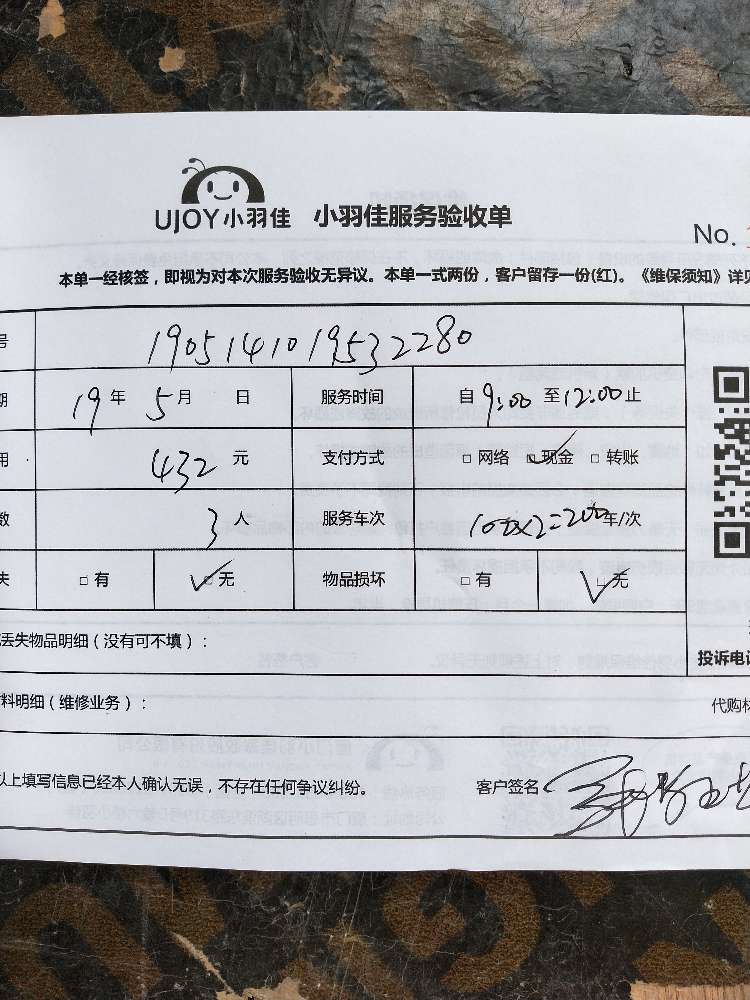 UJOY小羽佳 小羽佳服务验收单
No.
本单一经核签，即视为对本次服务验收无异议。本单一式两份，客户留存一份(红)。《维保须知》详见
号 1905141019532280
期 19年 5月 日 服务时间 自9:00至12:00止
用 432元 支付方式 □网络 □现金 □转账
数 3人 服务车次 100x2=200年/次
失 □有 □无 物品损坏 □有 □无
丢失物品明细（没有可不填）：
投诉电话
料明细（维修业务）：
代购材
以上填写信息已经本人确认无误，不存在任何争议纠纷。 客户签名